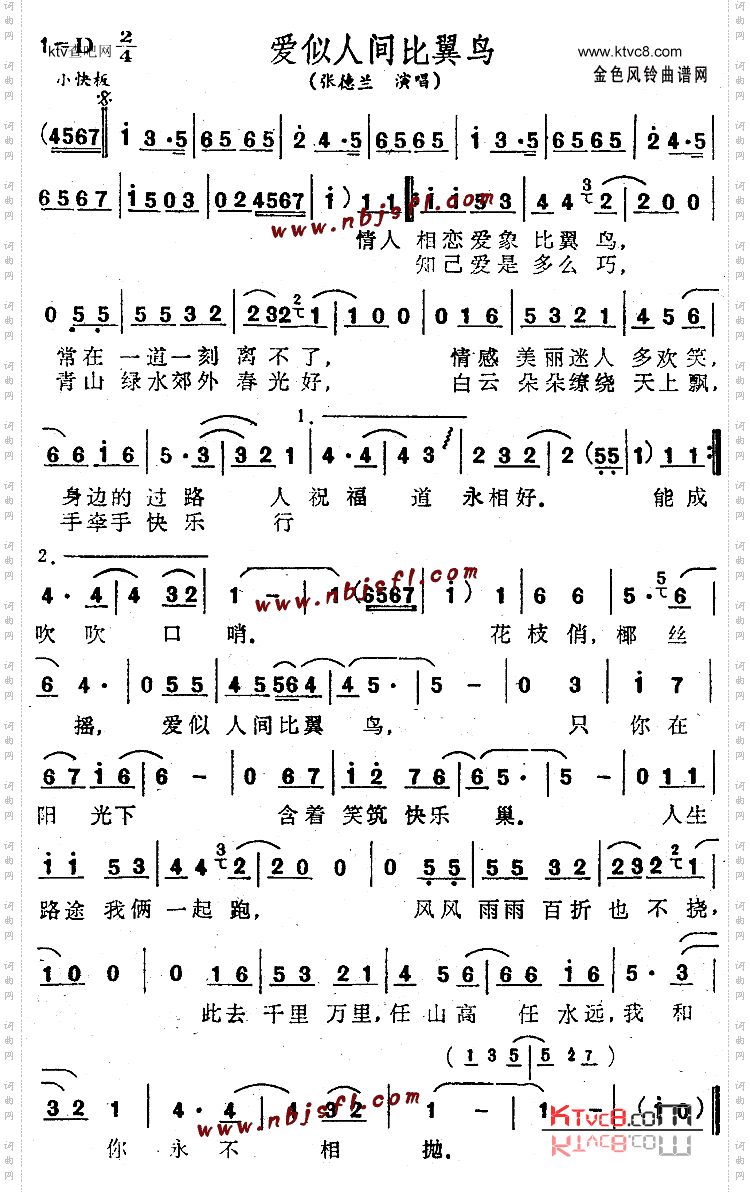 1=D 2/4
ktv查吧网
爱似人间比翼鸟
www.ktvc8.com
金色风铃曲谱网
小快板
(张德兰 演唱)
(4567 | i 3·5 | 65 65 | 2 4·5 | 65 65 | i 3·5 | 65 65 | 2 4·5 |
6567 | i503 | 02 4567 | i) 11 | i·i 33 | 44 3 2 | 200 |
www.nbjsfl.com
情人 相恋爱象 比翼 鸟,
知己爱是 多么 巧,
0 55 | 5532 | 2321 2 | 100 | 016 | 5321 | 456 |
常在 一道一刻 离不了, 情感 美丽迷人 多欢笑,
青山 绿水郊外 春光好, 白云 朵朵缭绕 天上飘,
1.
66i6 | 5·3 | 321 | 4·4 | 43 | 232 | 2 (55 | 1) 11 :|
身边的 过路 人祝福 道 永相好. 能成
手牵手 快乐 行
2.
4·4 | 4 32 | 1 - | (6567 | i) | 1 66 | 5· 5 6 |
www.nbjsfl.com
吹吹 口 哨. 花枝俏,椰丝
6 4· | 055 | 45564 | 45· | 5 - | 0 3 | i 7 |
摇, 爱似 人间比翼 鸟, 只 你在
67i6 | 6 - | 067 | i2 76 | 65· | 5 - | 011 |
阳 光下 含着 笑筑 快乐 巢. 人生
ii 53 | 44 3 2 | 200 | 0 55 | 55 32 | 232 2 1 |
路途 我俩 一起 跑, 风风 雨雨 百折 也 不 挠,
100 | 0 16 | 53 21 | 4 56 | 66 i6 | 5·3 |
此去 千里 万里,任 山高 任 水远,我 和
( 1 3 5 | 5 2 7 )
32 1 | 4·4 | 4 32 | 1 - | 1 - | (i0) ||
www.nbjsfl.com
你 永 不 相 抛.
KTvc8.com
词曲网